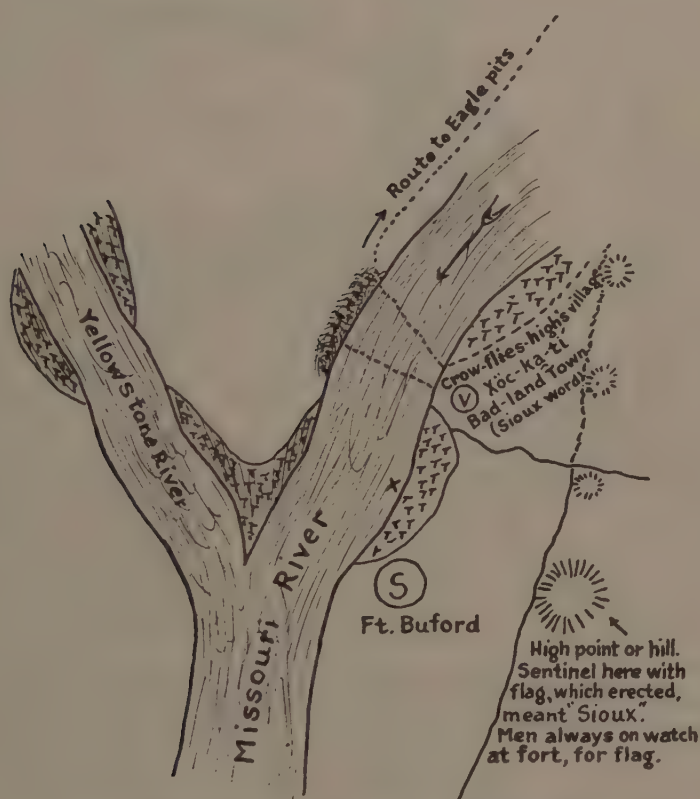 Route to Eagle pits
YellowStone River
Crow-flies-high's village
V
Xöc-ka-ti
Bad-land Town
(Sioux word)
x
Missouri River
S
Ft. Buford
High point or hill.
Sentinel here with
flag, which erected,
meant "Sioux".
Men always on watch
at fort, for flag.